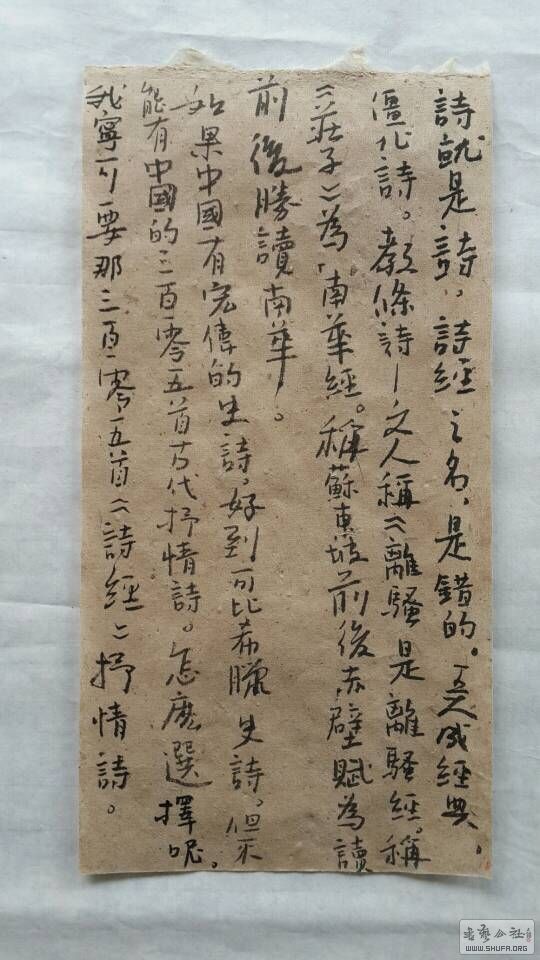 詩就是詩，詩經之名，是錯的。成經典。
僵化詩。教條詩—文人稱《離騷是離騷經。稱
《莊子》為「南華經。稱蘇東坡前後赤壁賦為讀
前後勝讀南華」。
如果中國有宏偉的史詩，好到可比希臘史詩。但不
能有中國的三百零五首古代抒情詩。怎麽選擇呢。
我寧可要那三百零五首《詩經》抒情詩。
书艺公社
WWW.SHUFA.ORG